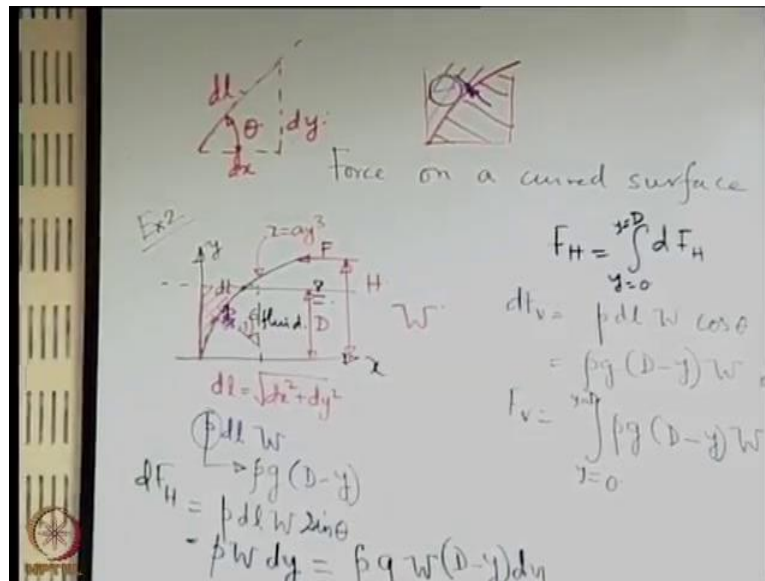 dl
θ
dy
dx
Force on a curved surface
Ex2
y
x=ay³
F
dl
H
fluid
D
W
x
dl = √dx²+dy²
p dl W
ρg(D-y)
dF_H = p dl W sinθ
= p W dy = ρg W(D-y)dy
F_H = ∫_{y=0}^{y=D} dF_H
dF_v = p dl W cosθ
= ρg(D-y)W
F_v = ∫_{y=0}^{y=D} ρg(D-y)W
NPTEL